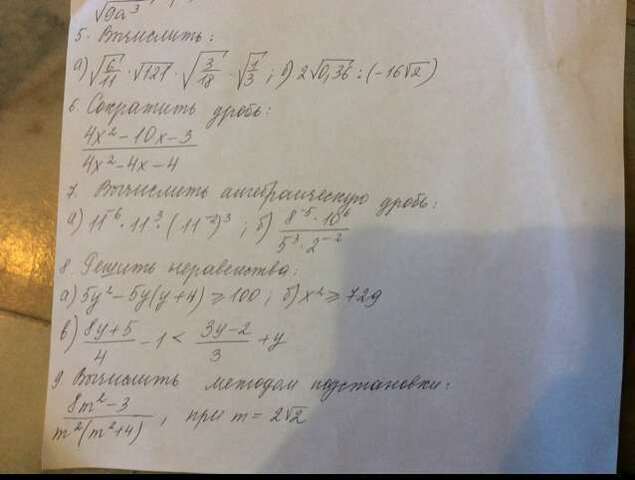 √9a³
5. Вычислить:
а) √(6/11) · √121 · √(3/18) · √(1/3) ; б) 2√0,36 : (-16√2)
6. Сократить дробь:
(4x² - 10x - 3)/(4x² - 4x - 4)
7. Вычислить алгебраическую дробь:
а) 11⁻⁶ · 11³ · (11⁻²)³ ; б) (8⁻⁵ · 10⁶)/(5³ · 2⁻²)
8. Решить неравенства:
а) 5y² - 5y(y+4) ⩾ 100 ; б) x² ⩾ 729
в) (8y+5)/4 - 1 < (3y-2)/3 + y
9 Вычислить методом подстановки:
(8m² - 3)/(m²(m²+4)) , при m = 2√2